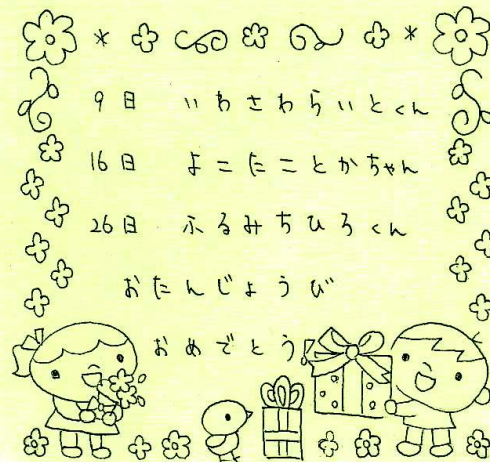 9日 いわさわらいとくん
16日 よこたことかちゃん
26日 ふるみちひろくん
おたんじょうび
おめでとう